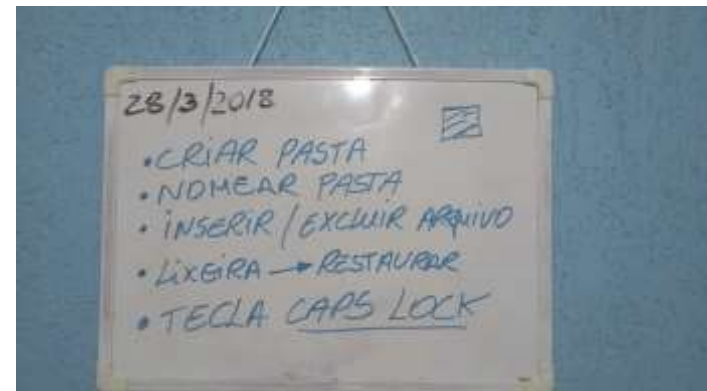 28/3/2018
• CRIAR PASTA
• NOMEAR PASTA
• INSERIR / EXCLUIR ARQUIVO
• LIXEIRA → RESTAURAR
• TECLA CAPS LOCK